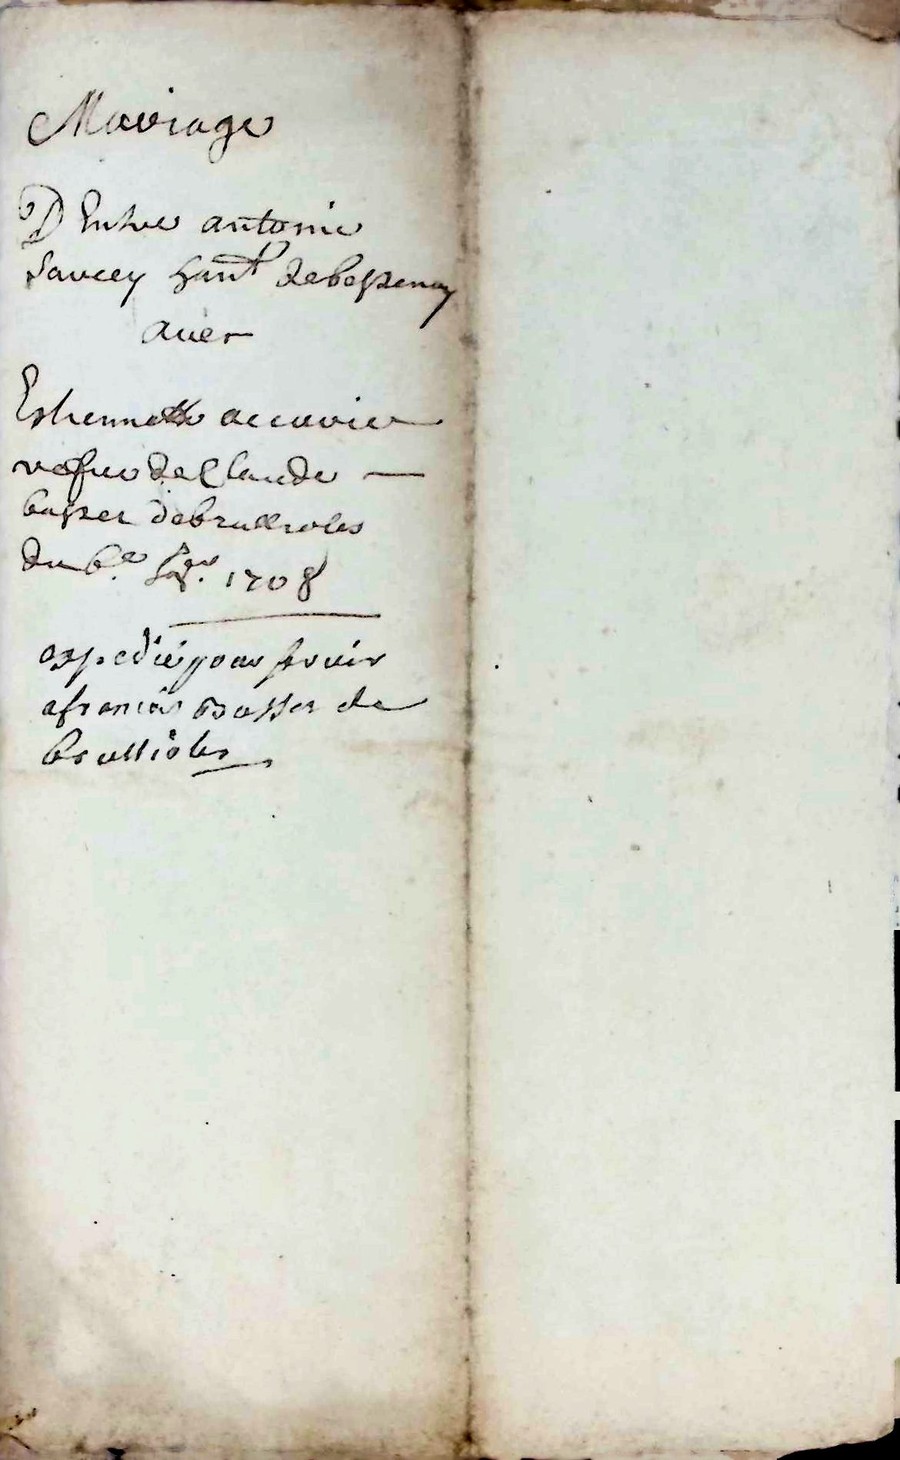 Mariage
D Entre antoine
Saucey hant de bessenay
avec
Estiennette accarier
vefue de Claude
basset de brullioles
du 6e 1708
expedié pour servir
a francois Basset de
brullioles